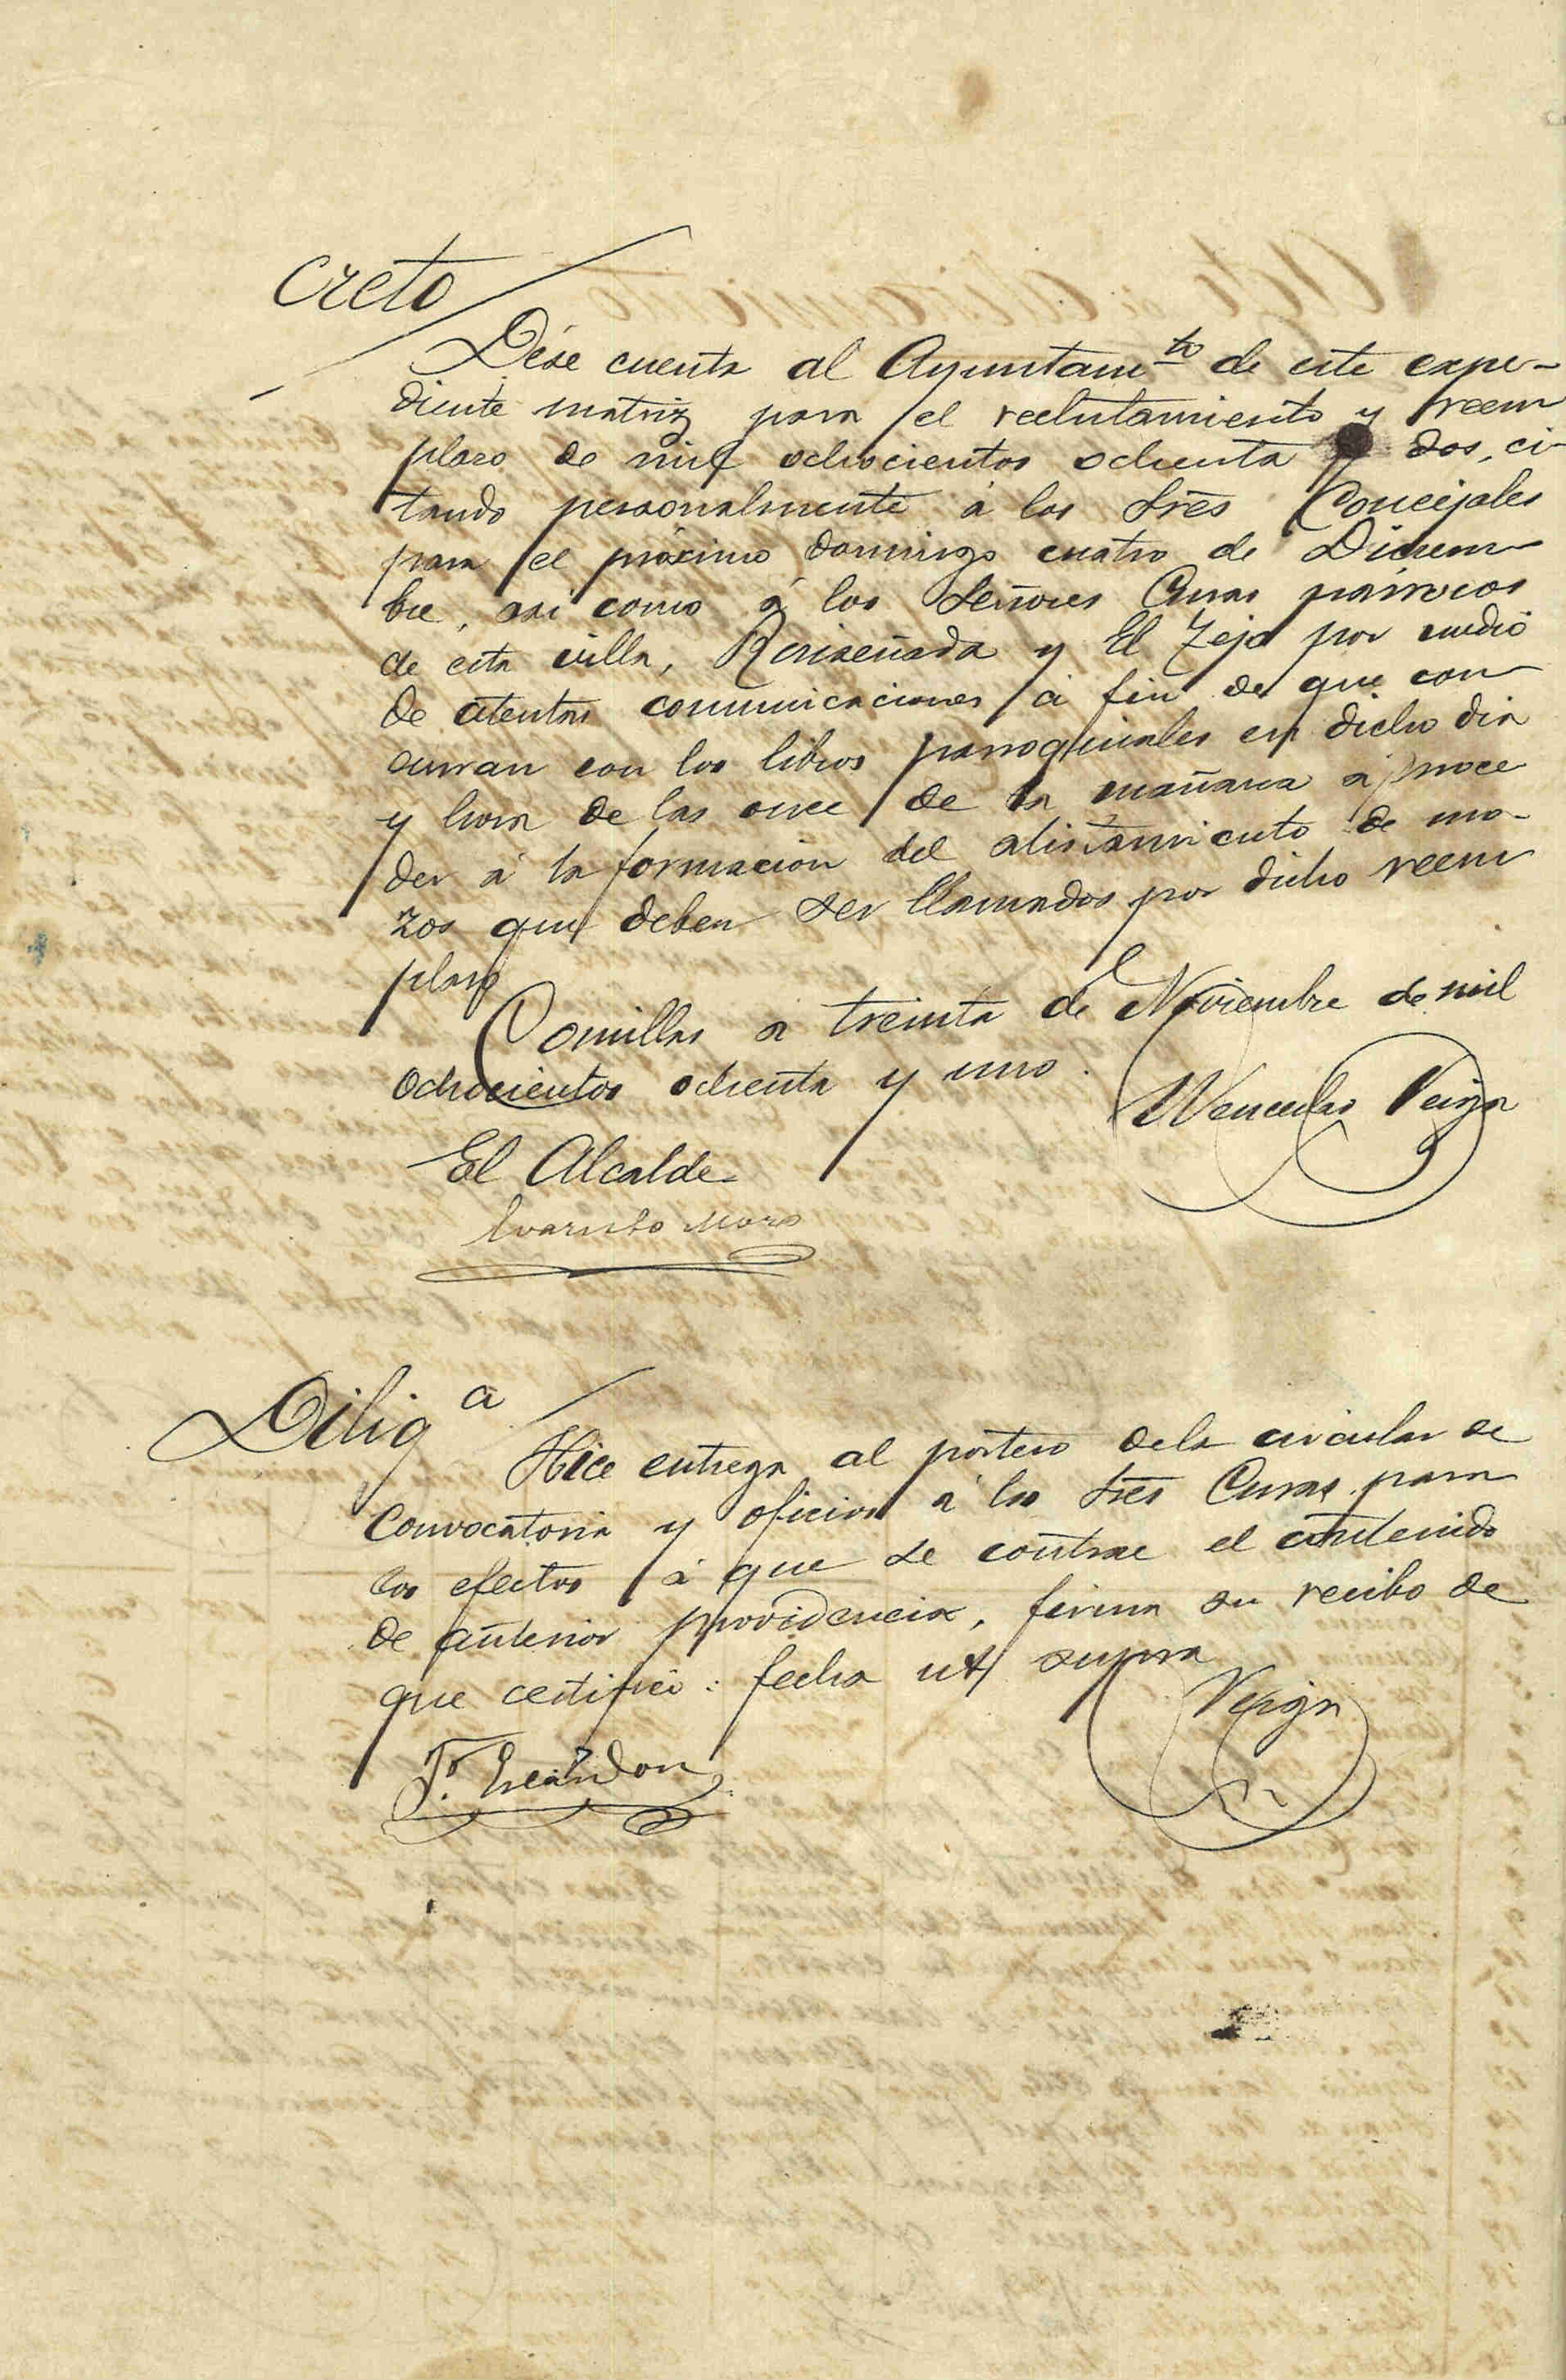 creto
Dése cuenta al Ayuntam.to de este expe-
diente matriz para el reclutamiento y reem
plazo de mil ochocientos ochenta y dos, ci-
tando personalmente á los Sres Concejales
para el próximo domingo cuatro de Diciem-
bre, asi como á los Señores Curas párrocos
de esta villa, Ruiseñada y El Tejo por medio
de atentas comunicaciones á fin de que con
curran con los libros parroquiales en dicho dia
y hora de las once de la mañana á proce
der á la formacion del alistamiento de mo-
zos que deben ser llamados por dicho reem
plazo
Comillas a treinta de Noviembre de mil
ochocientos ochenta y uno.
Wenceslao Veiga
El Alcalde
Evaristo Moro
Dilig a
Hice entrega al portero dela circular de
Convocatoria y oficios á los Sres Curas para
los efectos á que se contrae el contenido
de anterior providencia, firma su recibo de
que certifico: fecha ut supra
Veiga
F. Escandon